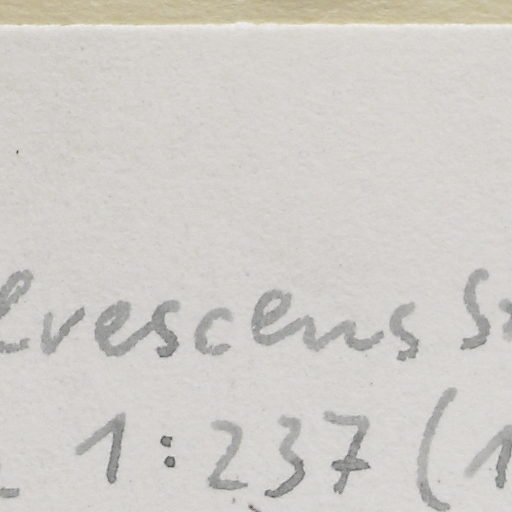 lvrescens S
1:237 (1